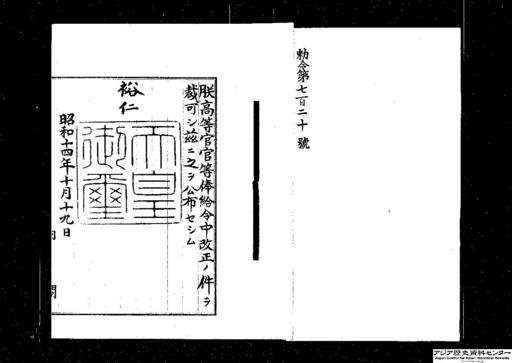 勅令第七百二十號
朕高等官官等俸給令中改正ノ件ヲ
裁可シ茲ニ之ヲ公布セシム
裕仁
天皇御璽
昭和十四年十月十九日
内閣
アジア歴史資料センター
Japan Center for Asian Historical Records